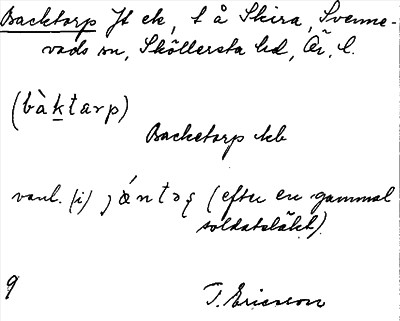 Backtorp Jt ek, t å Skira, Svenne-
vads sn, Sköllersta hd, Ör. l.
(bàktarp)
Backetorp kb
vanl. (i) jántəs (efter en gammal
soldatsläkt).
9
T. Ericsson